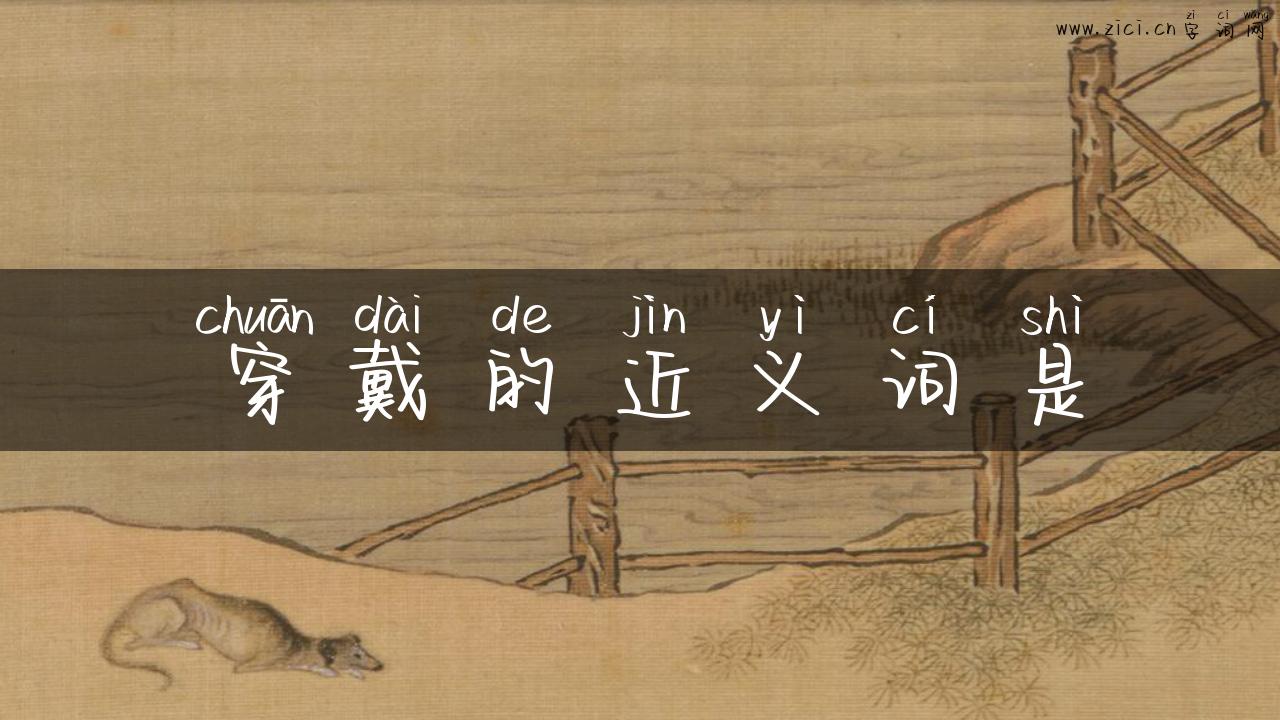 zi ci wang
www.zici.cn字词网
chuān dài de jìn yì cí shì
穿戴的近义词是